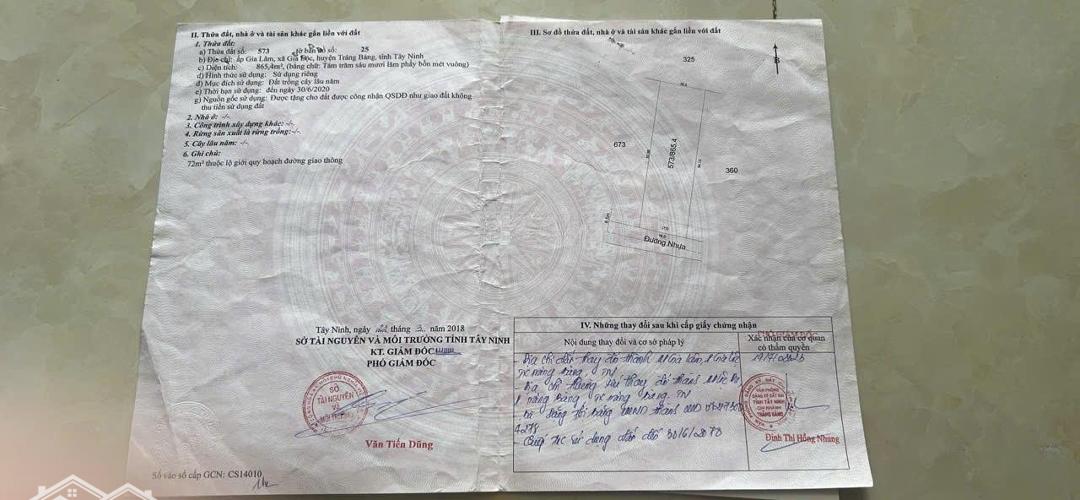 II. Thửa đất, nhà ở và tài sản khác gắn liền với đất
1. Thửa đất:
a) Thửa đất số: 573 tờ bản đồ số: 25
b) Địa chỉ: ấp Gia Lâm, xã Gia Lộc, huyện Trảng Bàng, tỉnh Tây Ninh
c) Diện tích: 865,4m², (bằng chữ: Tám trăm sáu mươi lăm phẩy bốn mét vuông)
d) Hình thức sử dụng: Sử dụng riêng
đ) Mục đích sử dụng: Đất trồng cây lâu năm
e) Thời hạn sử dụng: đến ngày 30/6/2020
g) Nguồn gốc sử dụng: Được tặng cho đất được công nhận QSDĐ như giao đất không
thu tiền sử dụng đất
2. Nhà ở: -/-
3. Công trình xây dựng khác: -/-
4. Rừng sản xuất là rừng trồng: -/-
5. Cây lâu năm: -/-
6. Ghi chú:
72m² thuộc lộ giới quy hoạch đường giao thông
Tây Ninh, ngày tháng năm 2018
SỞ TÀI NGUYÊN VÀ MÔI TRƯỜNG TỈNH TÂY NINH
KT. GIÁM ĐỐC
PHÓ GIÁM ĐỐC
SỞ
TÀI NGUYÊN
VÀ
MÔI TRƯỜNG
Văn Tiến Dũng
Số vào sổ cấp GCN: CS14010
III. Sơ đồ thửa đất, nhà ở và tài sản khác gắn liền với đất
B
325
673
573/865.4
360
Đường Nhựa
IV. Những thay đổi sau khi cấp giấy chứng nhận
Nội dung thay đổi và cơ sở pháp lý
Xác nhận của cơ quan
có thẩm quyền
- Địa chỉ đất thay đổi thành
- Địa chỉ thường trú thay đổi thành
4278
sử dụng đất đến 30/6/2073
VĂN PHÒNG
ĐĂNG KÝ ĐẤT ĐAI
TỈNH TÂY NINH
CHI NHÁNH
TRẢNG BÀNG
Đinh Thị Hồng Nhung